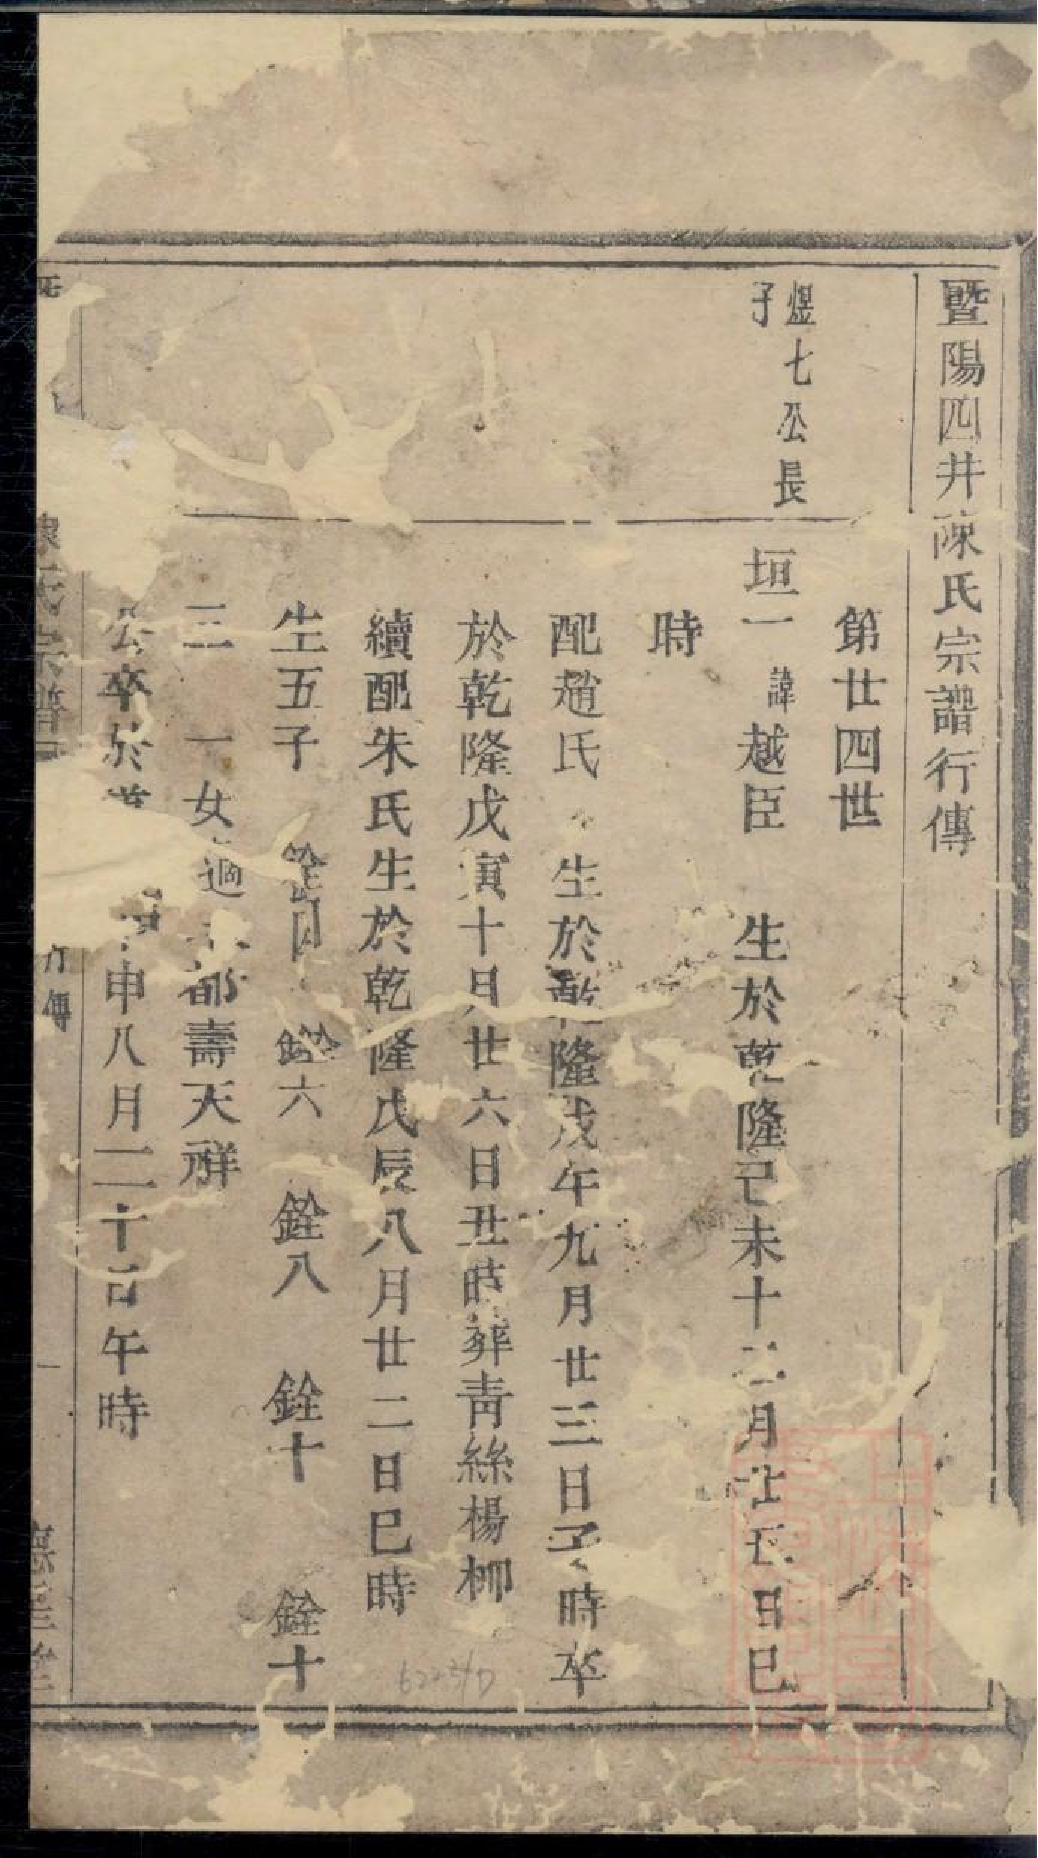 暨陽四井陳氏宗譜行傳
第廿四世
煜七公長
子
垣一 諱越臣 生於乾隆己未十二月廿五日巳
時
配趙氏 生於乾隆戊午九月廿三日子時卒
於乾隆戊寅十月廿六日丑時葬青絲楊柳
續配朱氏生於乾隆戊辰八月廿二日巳時
生五子 銓四 銓六 銓八 銓十 銓十
三 一女適 都壽天祥
公卒於 申八月二十日午時
氏宗譜
行傳
一